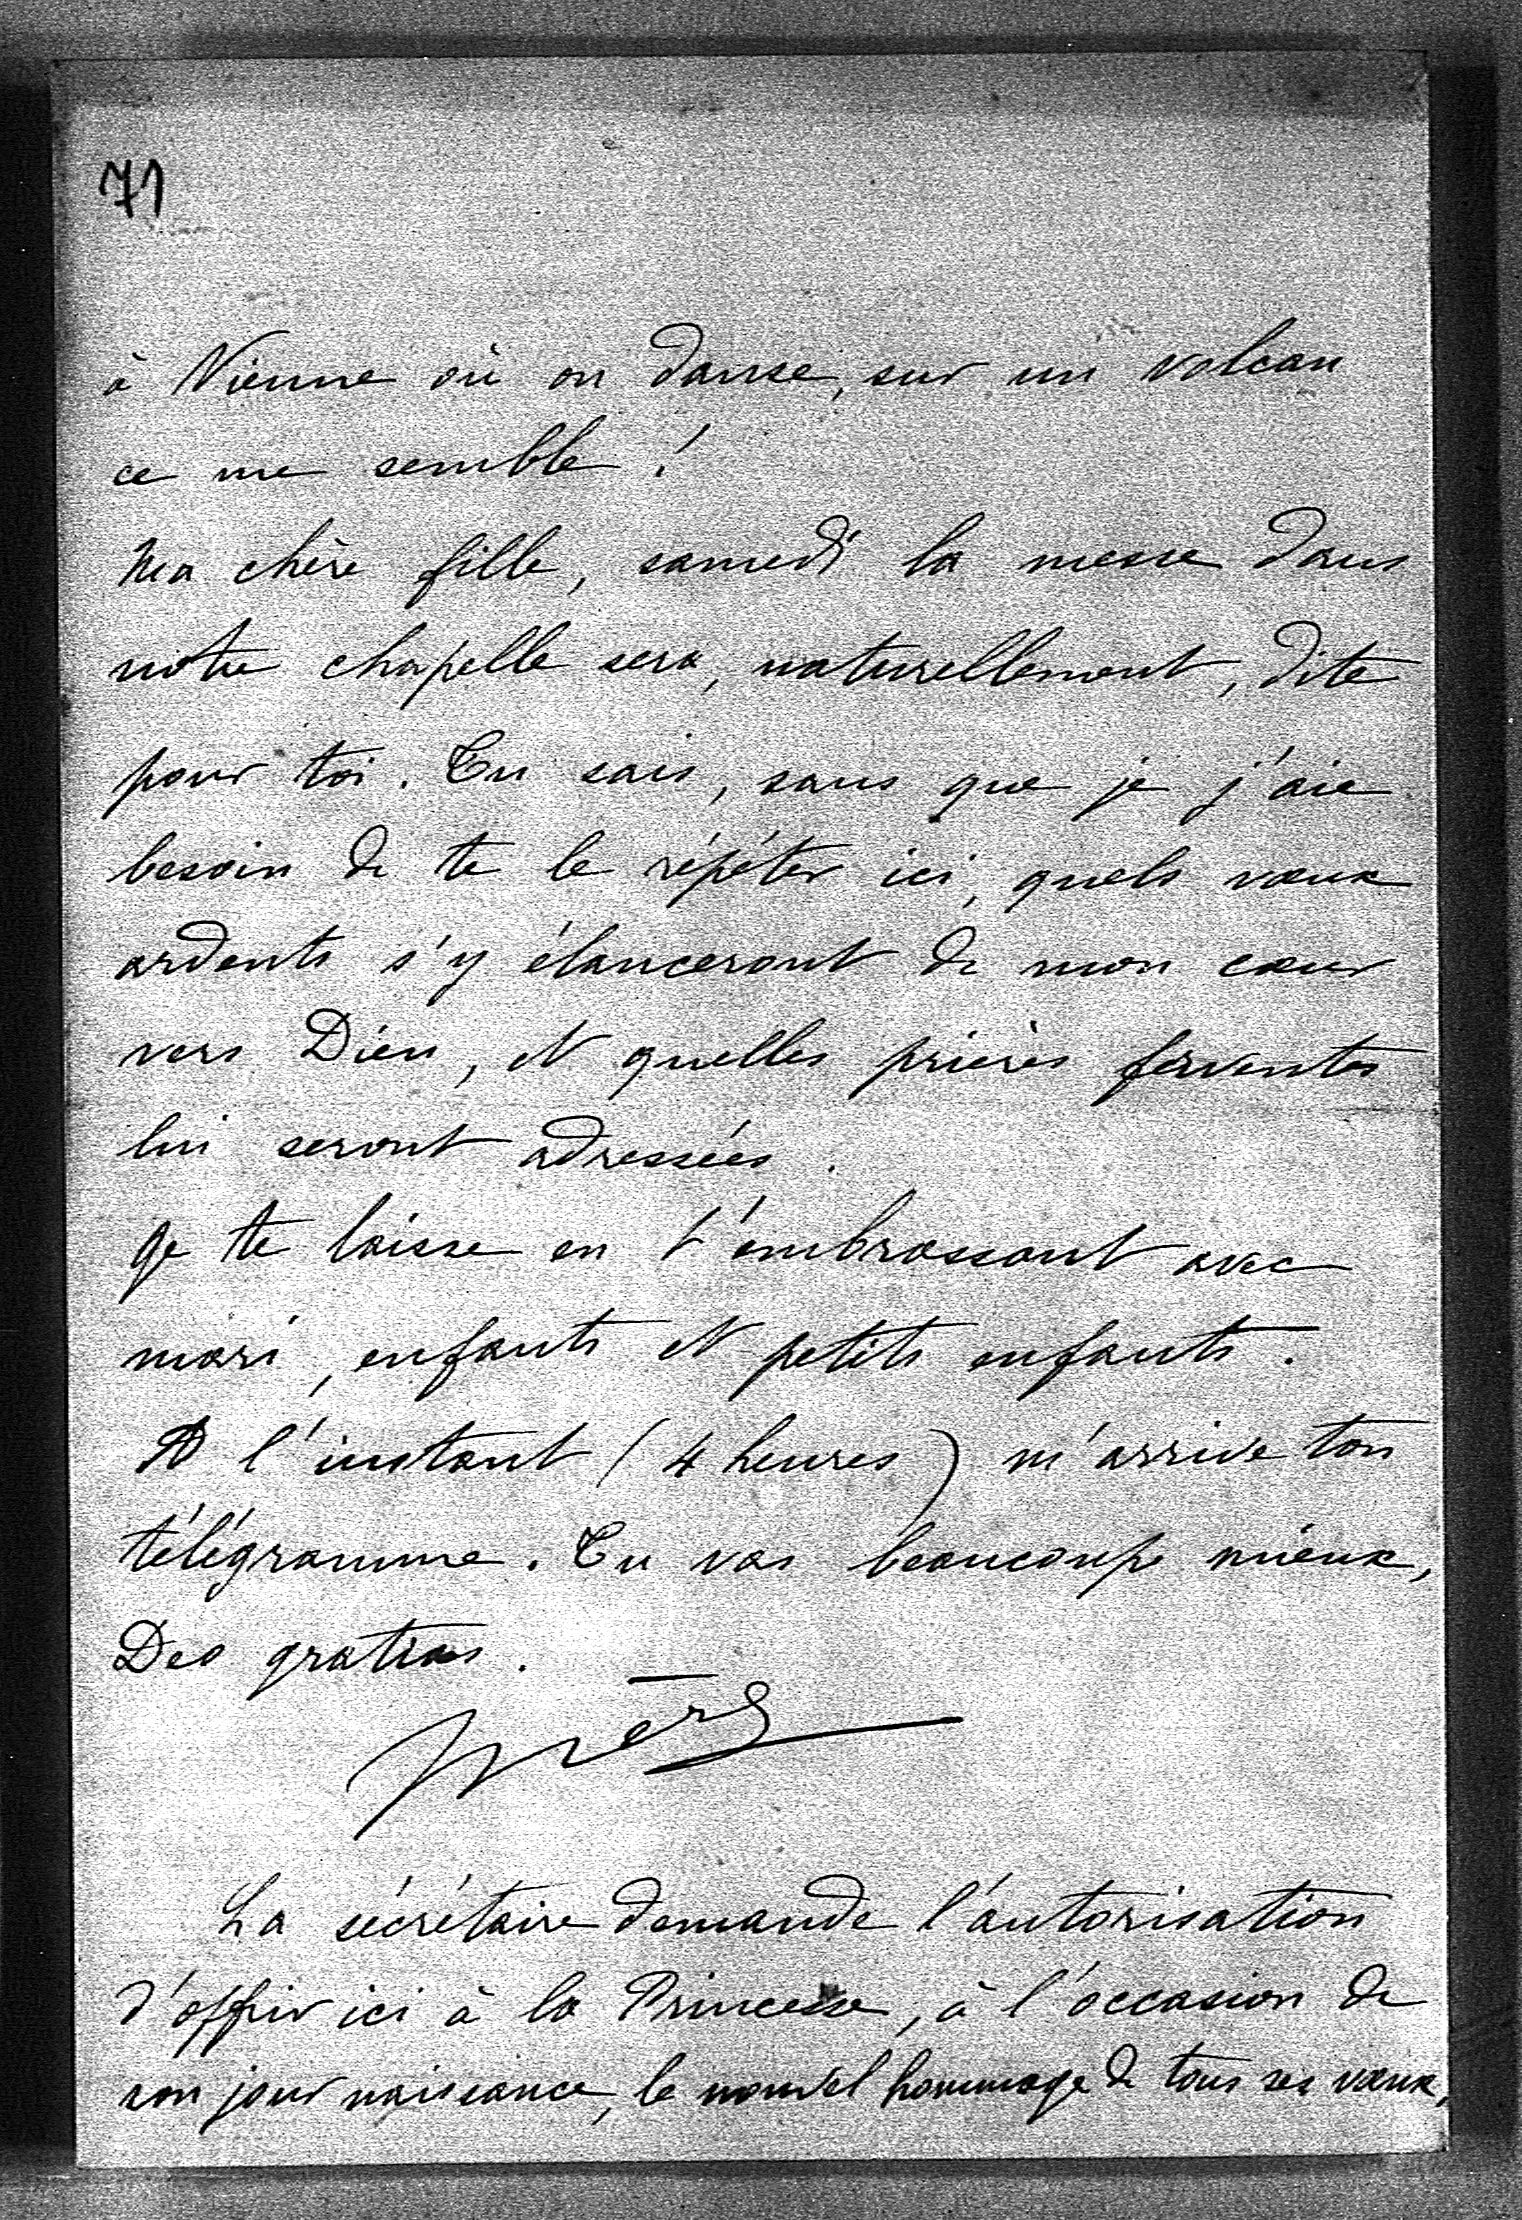 71
à Vienne où on danse, sur un volcan
ce me semble !
Ma chère fille, samedi la messe dans
notre chapelle sera, naturellement, dite
pour toi. Tu sais, sans que je j'aie
besoin de te le répéter ici, quels vœux
ardents s'y élanceront de mon cœur
vers Dieu, et quelles prières ferventes
lui seront adressées.
Je te laisse en t'embrassant avec
mari, enfants et petits enfants.
A l'instant (4 heures) m'arrive ton
télégramme. Tu vas beaucoup mieux,
Deo gratias.
Mère
La sécrétaire demande l'autorisation
d'offrir ici à la Princesse, à l'occasion de
son jour naissance, le nouvel hommage de tous ses vœux,